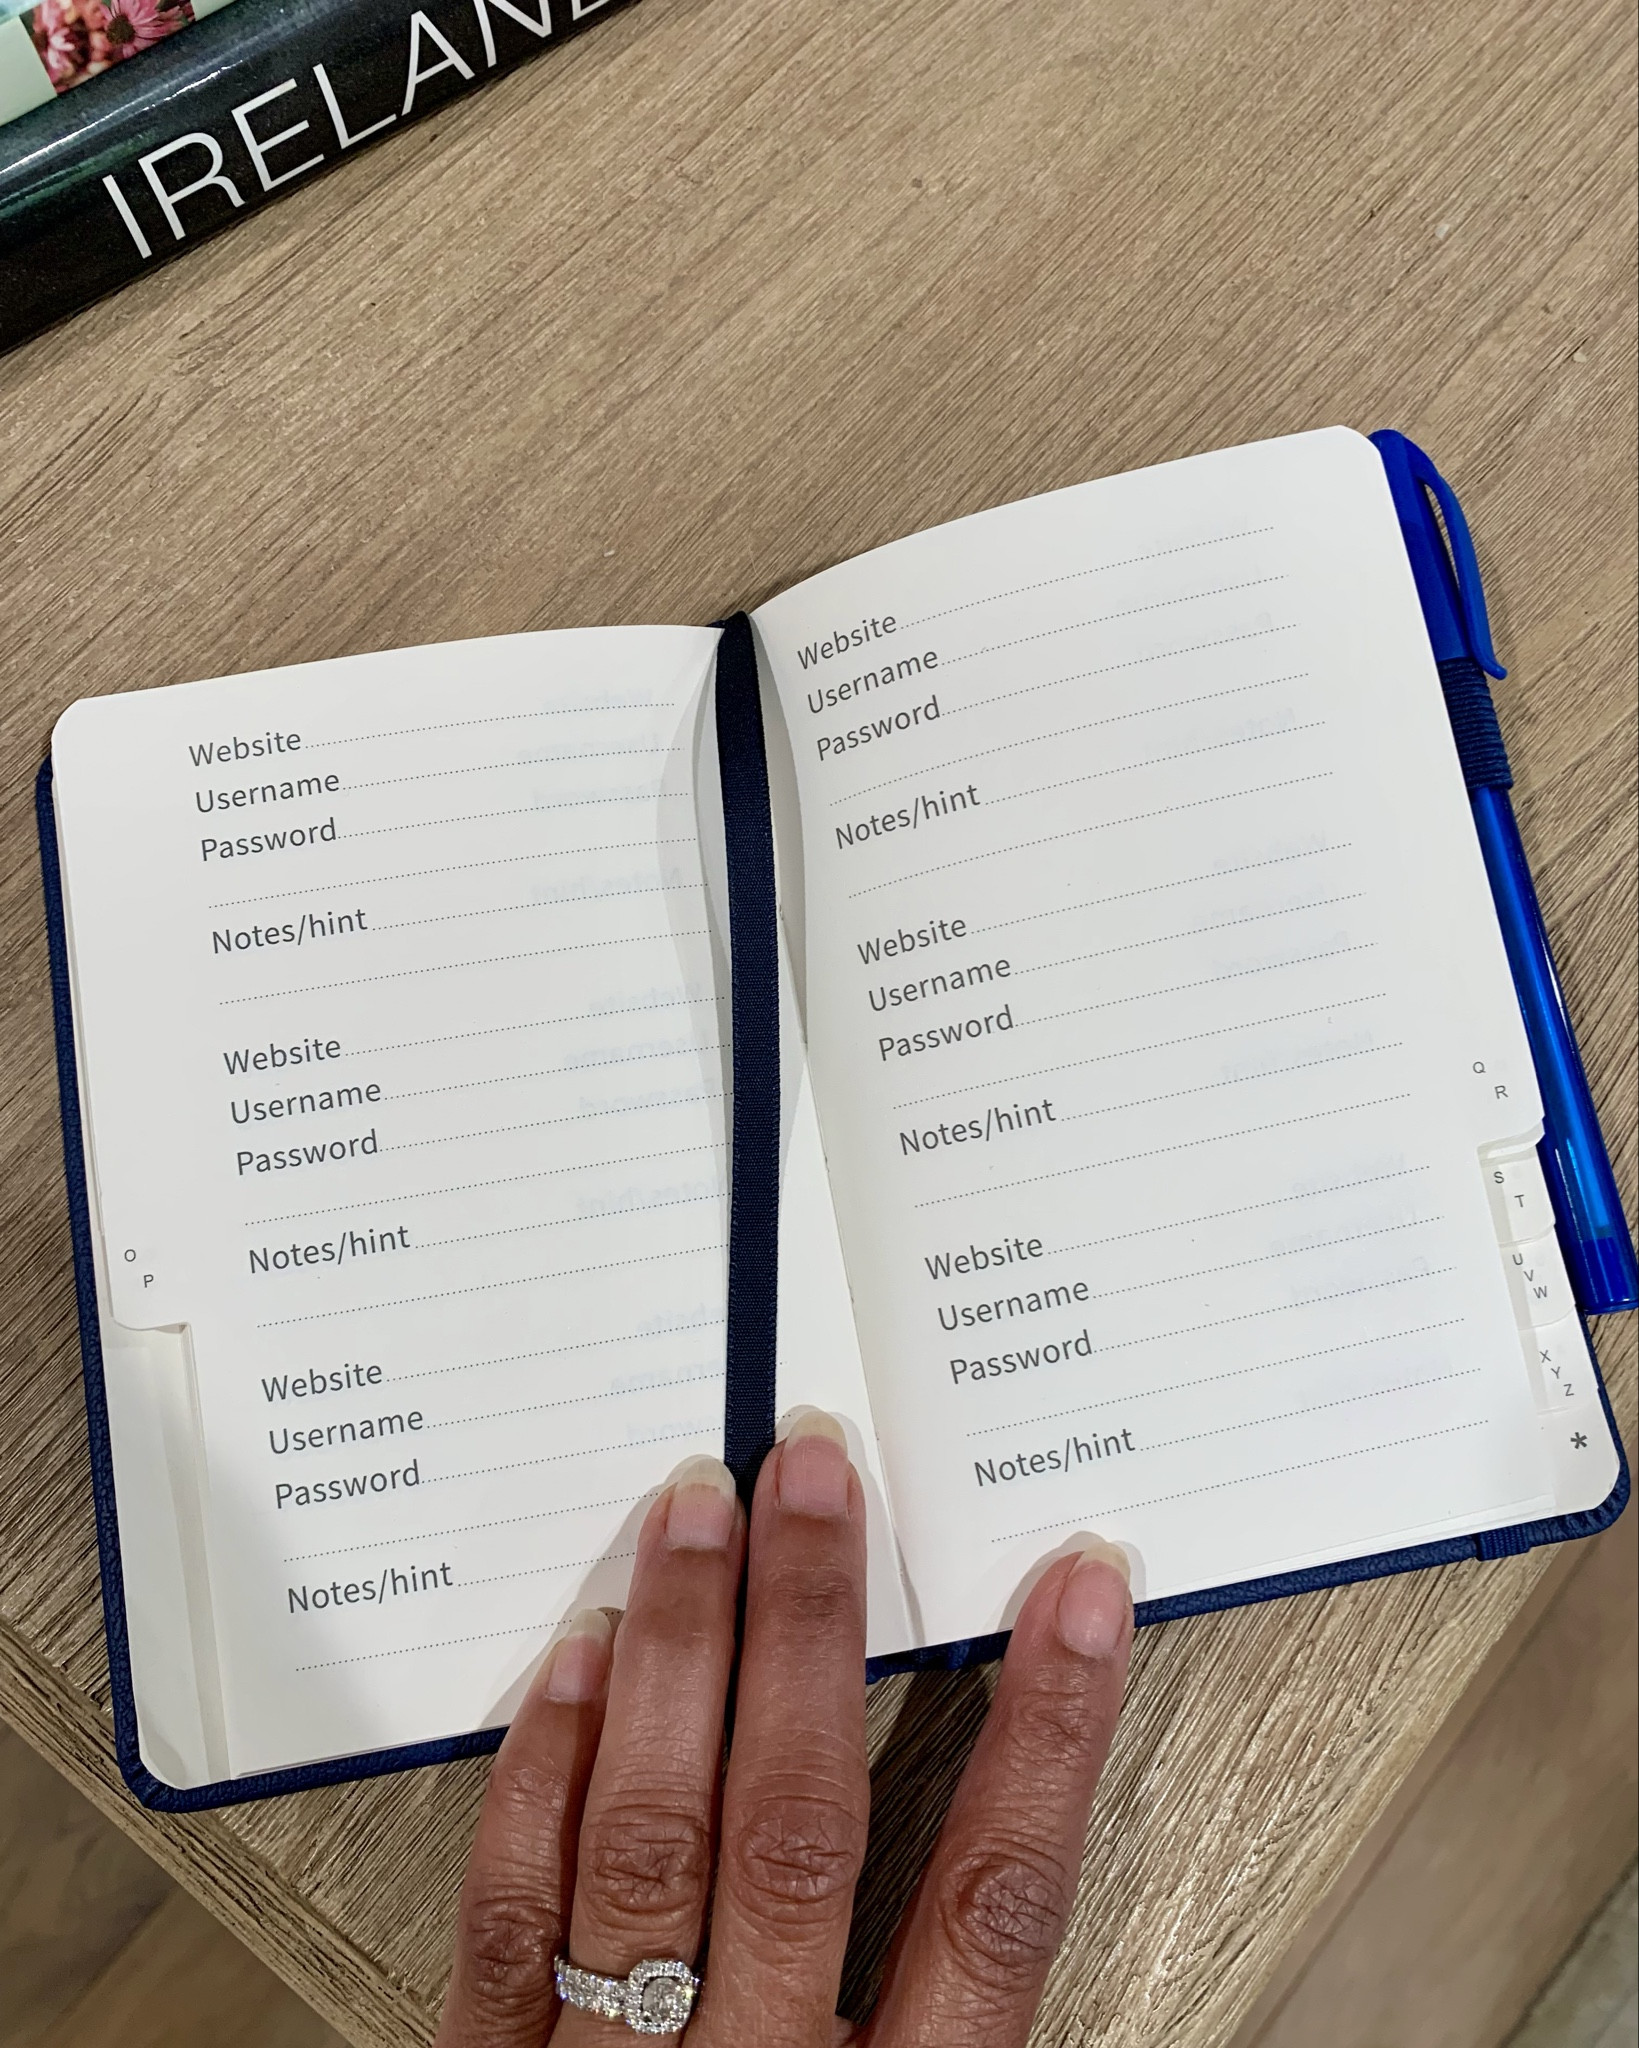 IRELAN
Website
Username
Password
Notes/hint
Website
Username
Password
Notes/hint
Website
Username
Password
Notes/hint
O
P
Website
Username
Password
Notes/hint
Website
Username
Password
Notes/hint
Website
Username
Password
Notes/hint
Q
R
S
T
U
V
W
X
Y
Z
*